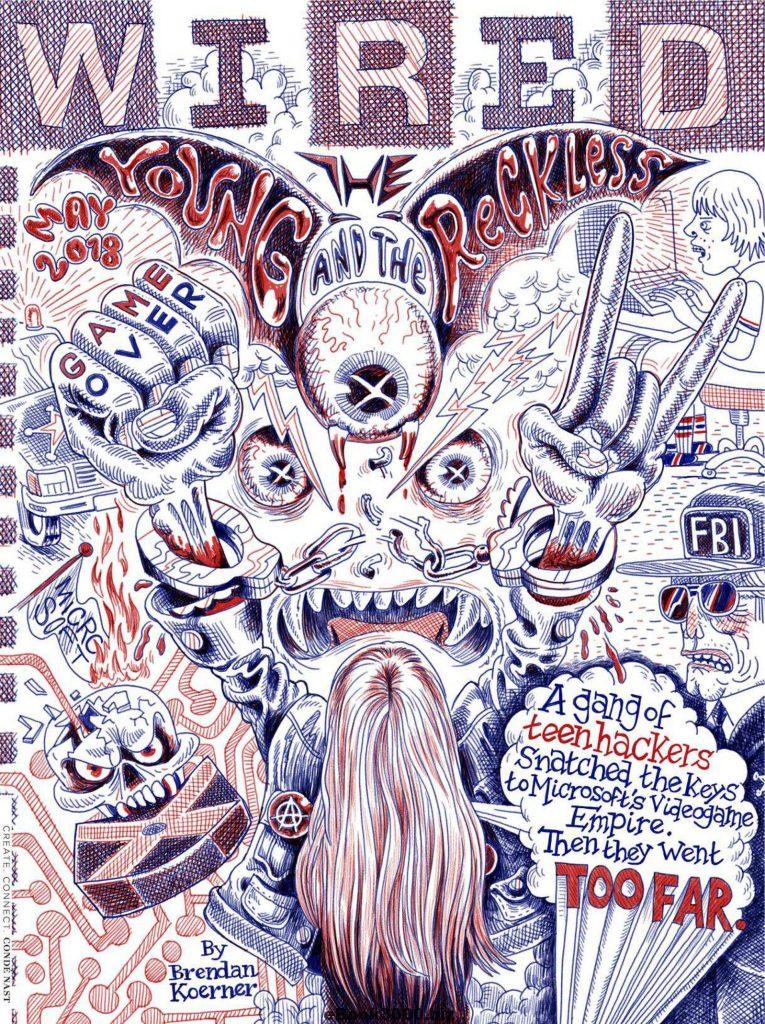 WIRED
YOUNG THE ReCKless
AND THE
MAY
2018
GAME
OVER
FBI
MICRO
SOFT
A gang of
teen hackers
snatched the keys
to Microsoft's Videogame
Empire.
Then they went
TOO FAR.
A
By
Brendan
Koerner
CREATE. CONNECT. CONDÉ NAST